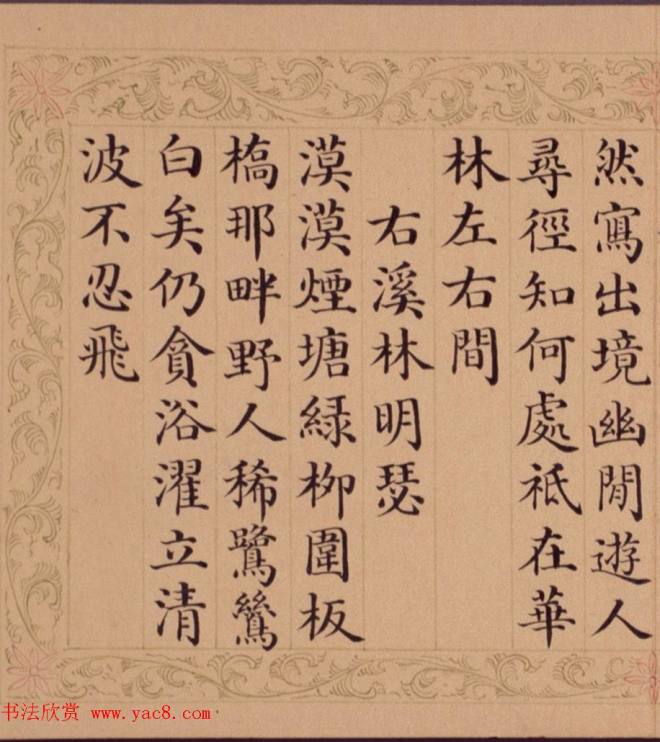 然寫出境幽閒遊人
尋徑知何處祗在華
林左右間
右溪林明瑟
漠漠煙塘綠柳圍板
橋那畔野人稀鷺鷥
白矣仍貪浴濯立清
波不忍飛
书法欣赏 www.yac8.com